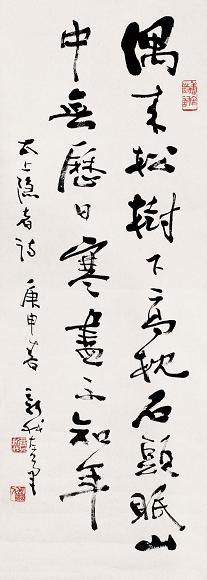 偶来松樹下高枕石頭眠山
中無歷日寒盡不知年
太上隱者詩 庚申 新我左筆